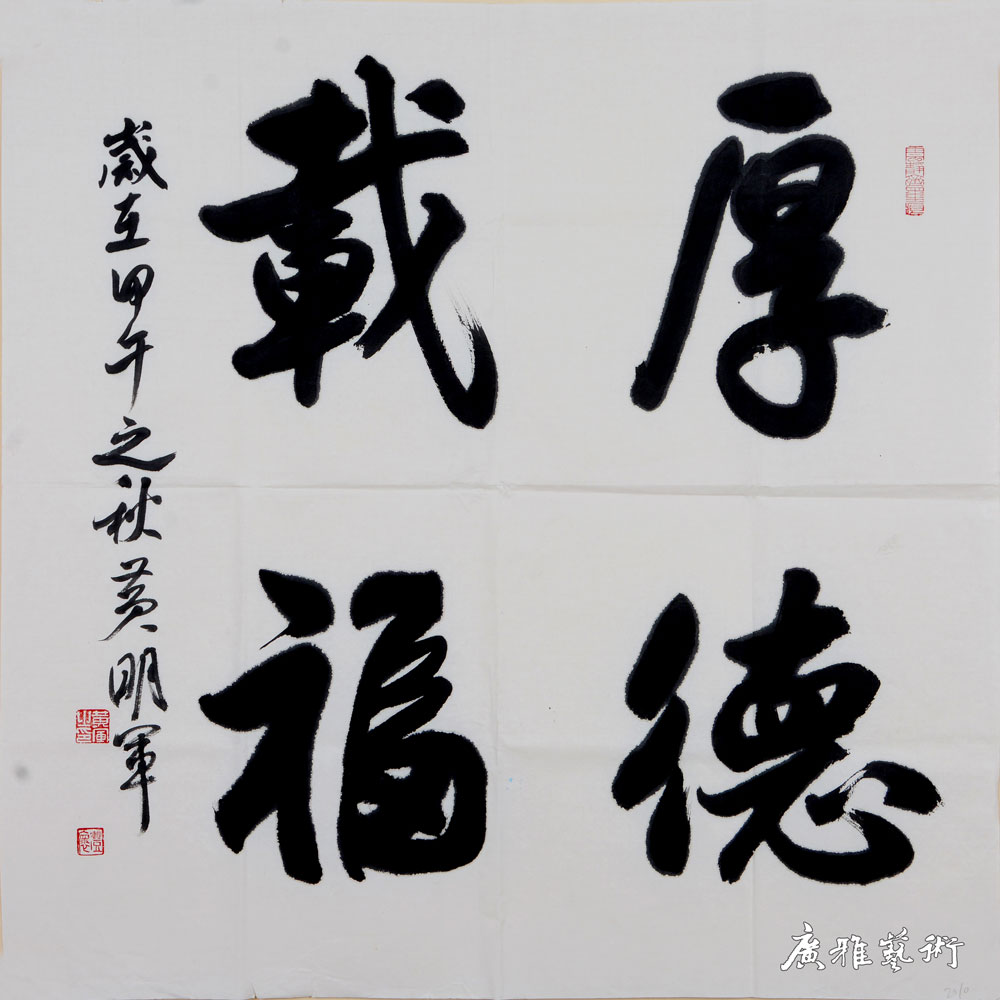 厚德
載福
歲在甲午之秋黄明軍
廣雅藝術